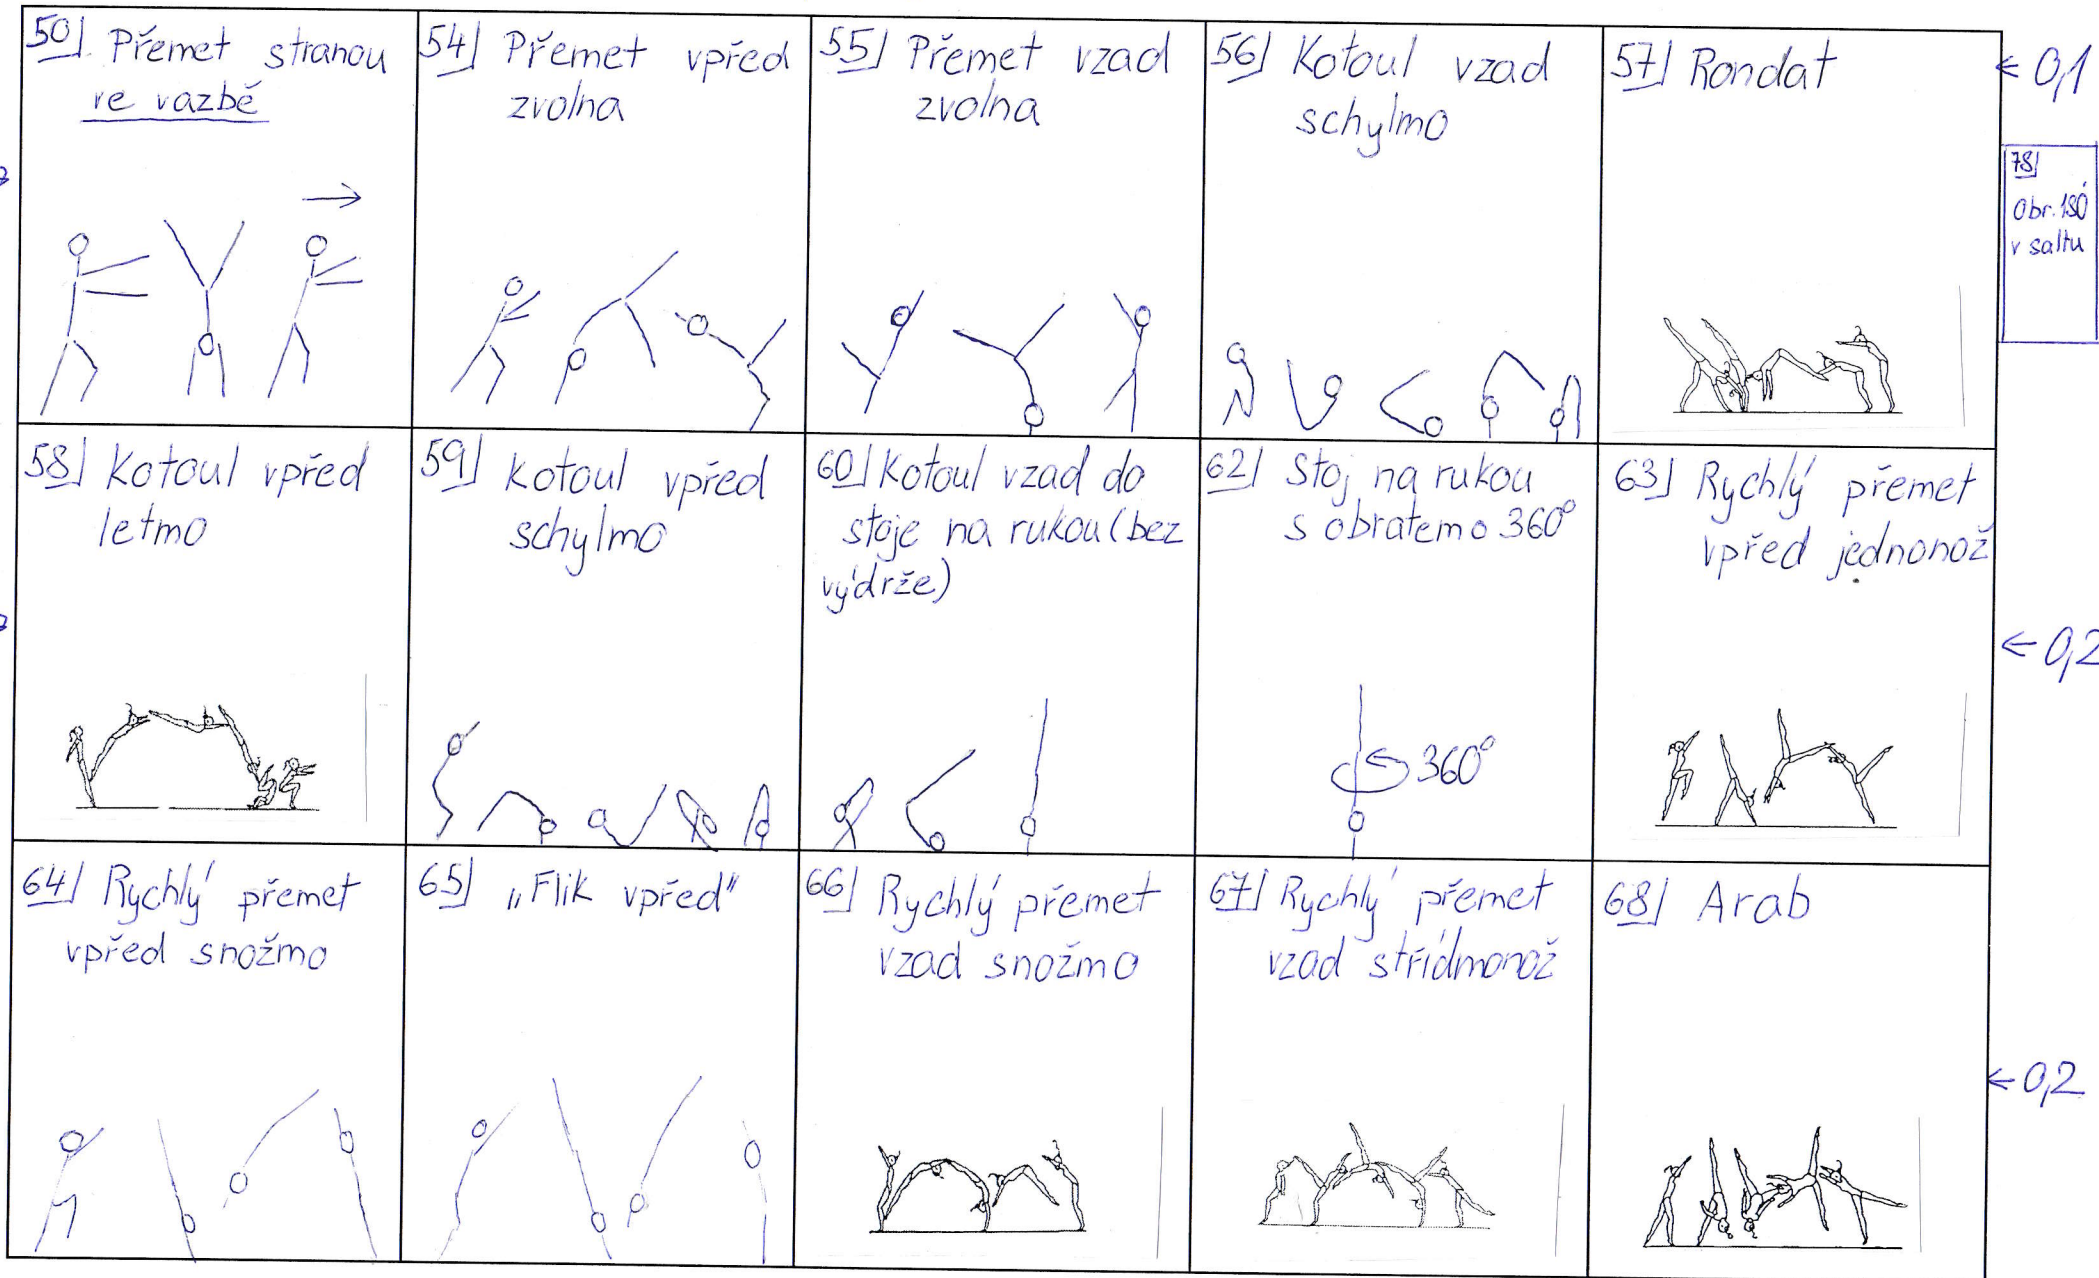 50) Přemet stranou
ve vazbě
54) Přemet vpřed
zvolna
55) Přemet vzad
zvolna
56) Kotoul vzad
schylmo
57) Rondat
← 0,1
78)
Obr. 180
v saltu
58) Kotoul vpřed
letmo
59) kotoul vpřed
schylmo
60) Kotoul vzad do
stoje na rukou (bez
výdrže)
62) Stoj na rukou
s obratem o 360°
360°
63) Rychlý přemet
vpřed jednonož
← 0,2
64) Rychlý přemet
vpřed snožmo
65) „Flik vpřed"
66) Rychlý přemet
vzad snožmo
67) Rychlý přemet
vzad střídmonož
68) Arab
← 0,2